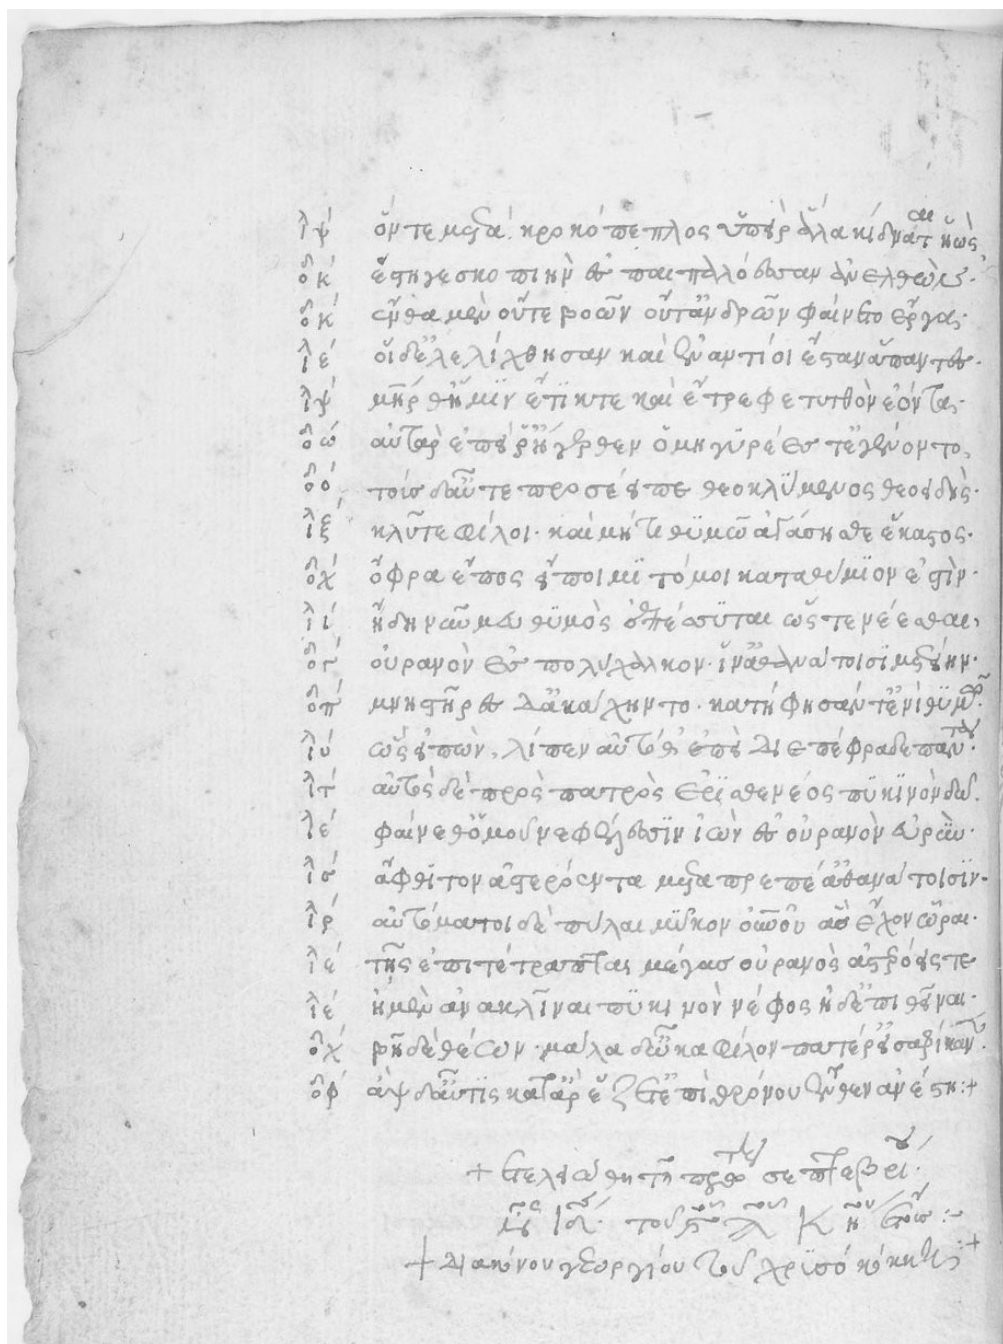 ἰλ ψ ὅν τε μέτα κροκόπεπλος ὑπεὶρ ἅλα κίδναται ἠὼς
ὀδ κ ἔστη γε σκοπιὴν ἐς παιπαλόεσσαν ἀνελθών·
ὀδ κ ἔνθα μὲν οὔτε βοῶν οὔτ' ἀνδρῶν φαίνετο ἔργα·
ἰλ ε οἱ δ' ἐλελίχθησαν καὶ ἐναντίοι ἔσταν ἅπαντες·
ἰλ ψ μήτηρ θ' ἥ μϊν ἔτϊκτε καὶ ἔτρεφε τυτθὸν ἐόντα·
ὀδ ω αὐτὰρ ἐπεί ῥ' ἤγερθεν ὁμηγϋρέες τ' ἐγένοντο,
ὀδ ο τοῖσ δ' αὖτε προσέειπε θεοκλΰμενος θεοειδής·
ἰλ ξ κλῦτε φίλοι· καὶ μή τι θϋμῶ ἀγάσησθε ἕκαστος·
ὀδ χ ὄφρα ἔπος εἴποιμϊ τό μοι καταθύμϊον ἐστὶν·
ἰλ ι ἤδη νῦν μοι θϋμὸς ἐπέσσϋται ὥς τε νέεσθαι,
ὀδ οὐρανὸν ἐσ πολύχαλκον· ἵν' ἀθανάτοισϊ μετείην·
ὀδ π μνηστῆρες δ' ἀκάχηντο· κατήφησάν τ' ἐνὶ θϋμῶ·
ἰλ υ ὣς εἰπὼν, λίπεν αὐτόθ' ἐπεὶ διεπέφραδε πάντα·
ἰλ τ αὐτὸς δὲ πρὸς πατρὸς ἐρϊσθενέος πϋκϊνὸν δῶ.
ἰλ ε φαίνεθ' ὁμοῦ νεφέεσσϊν ἰὼν ἐς οὐρανὸν εὐρὺν·
ἰλ σ ἄφθϊτον ἀστερόεντα μεταπρεπέ' ἀθανάτοισϊν·
ἰλ αὐτόματοι δὲ πύλαι μΰκον οὐρανοῦ ἃσ ἔχον ὧραι·
ἰλ ε τῆς ἐπιτέτραπται μέγασ οὐρανὸς
ἰλ ε ἠμὲν ἀνακλῖναι πϋκινὸν νέφος ἠδ' ἐπιθεῖναι·
ὀδ χ βῆ δὲ θέειν· μάλα δ' ὦκα φίλον πατέρ' εἰσαφίκανεν·
ὀδ φ ἂψ δ' αὖτϊς κατ' ἂρ ἕζετ' ἐπὶ θρόνου ἔνθεν ἀνέστη:+
+ ἐτελειώθη τῆ πρώτη σεπτεβρίου·
ἰνδ. τοῦ ἔτους :–
+ διακόνου γεωργίου τοῦ χρϋσοκόκκη :+